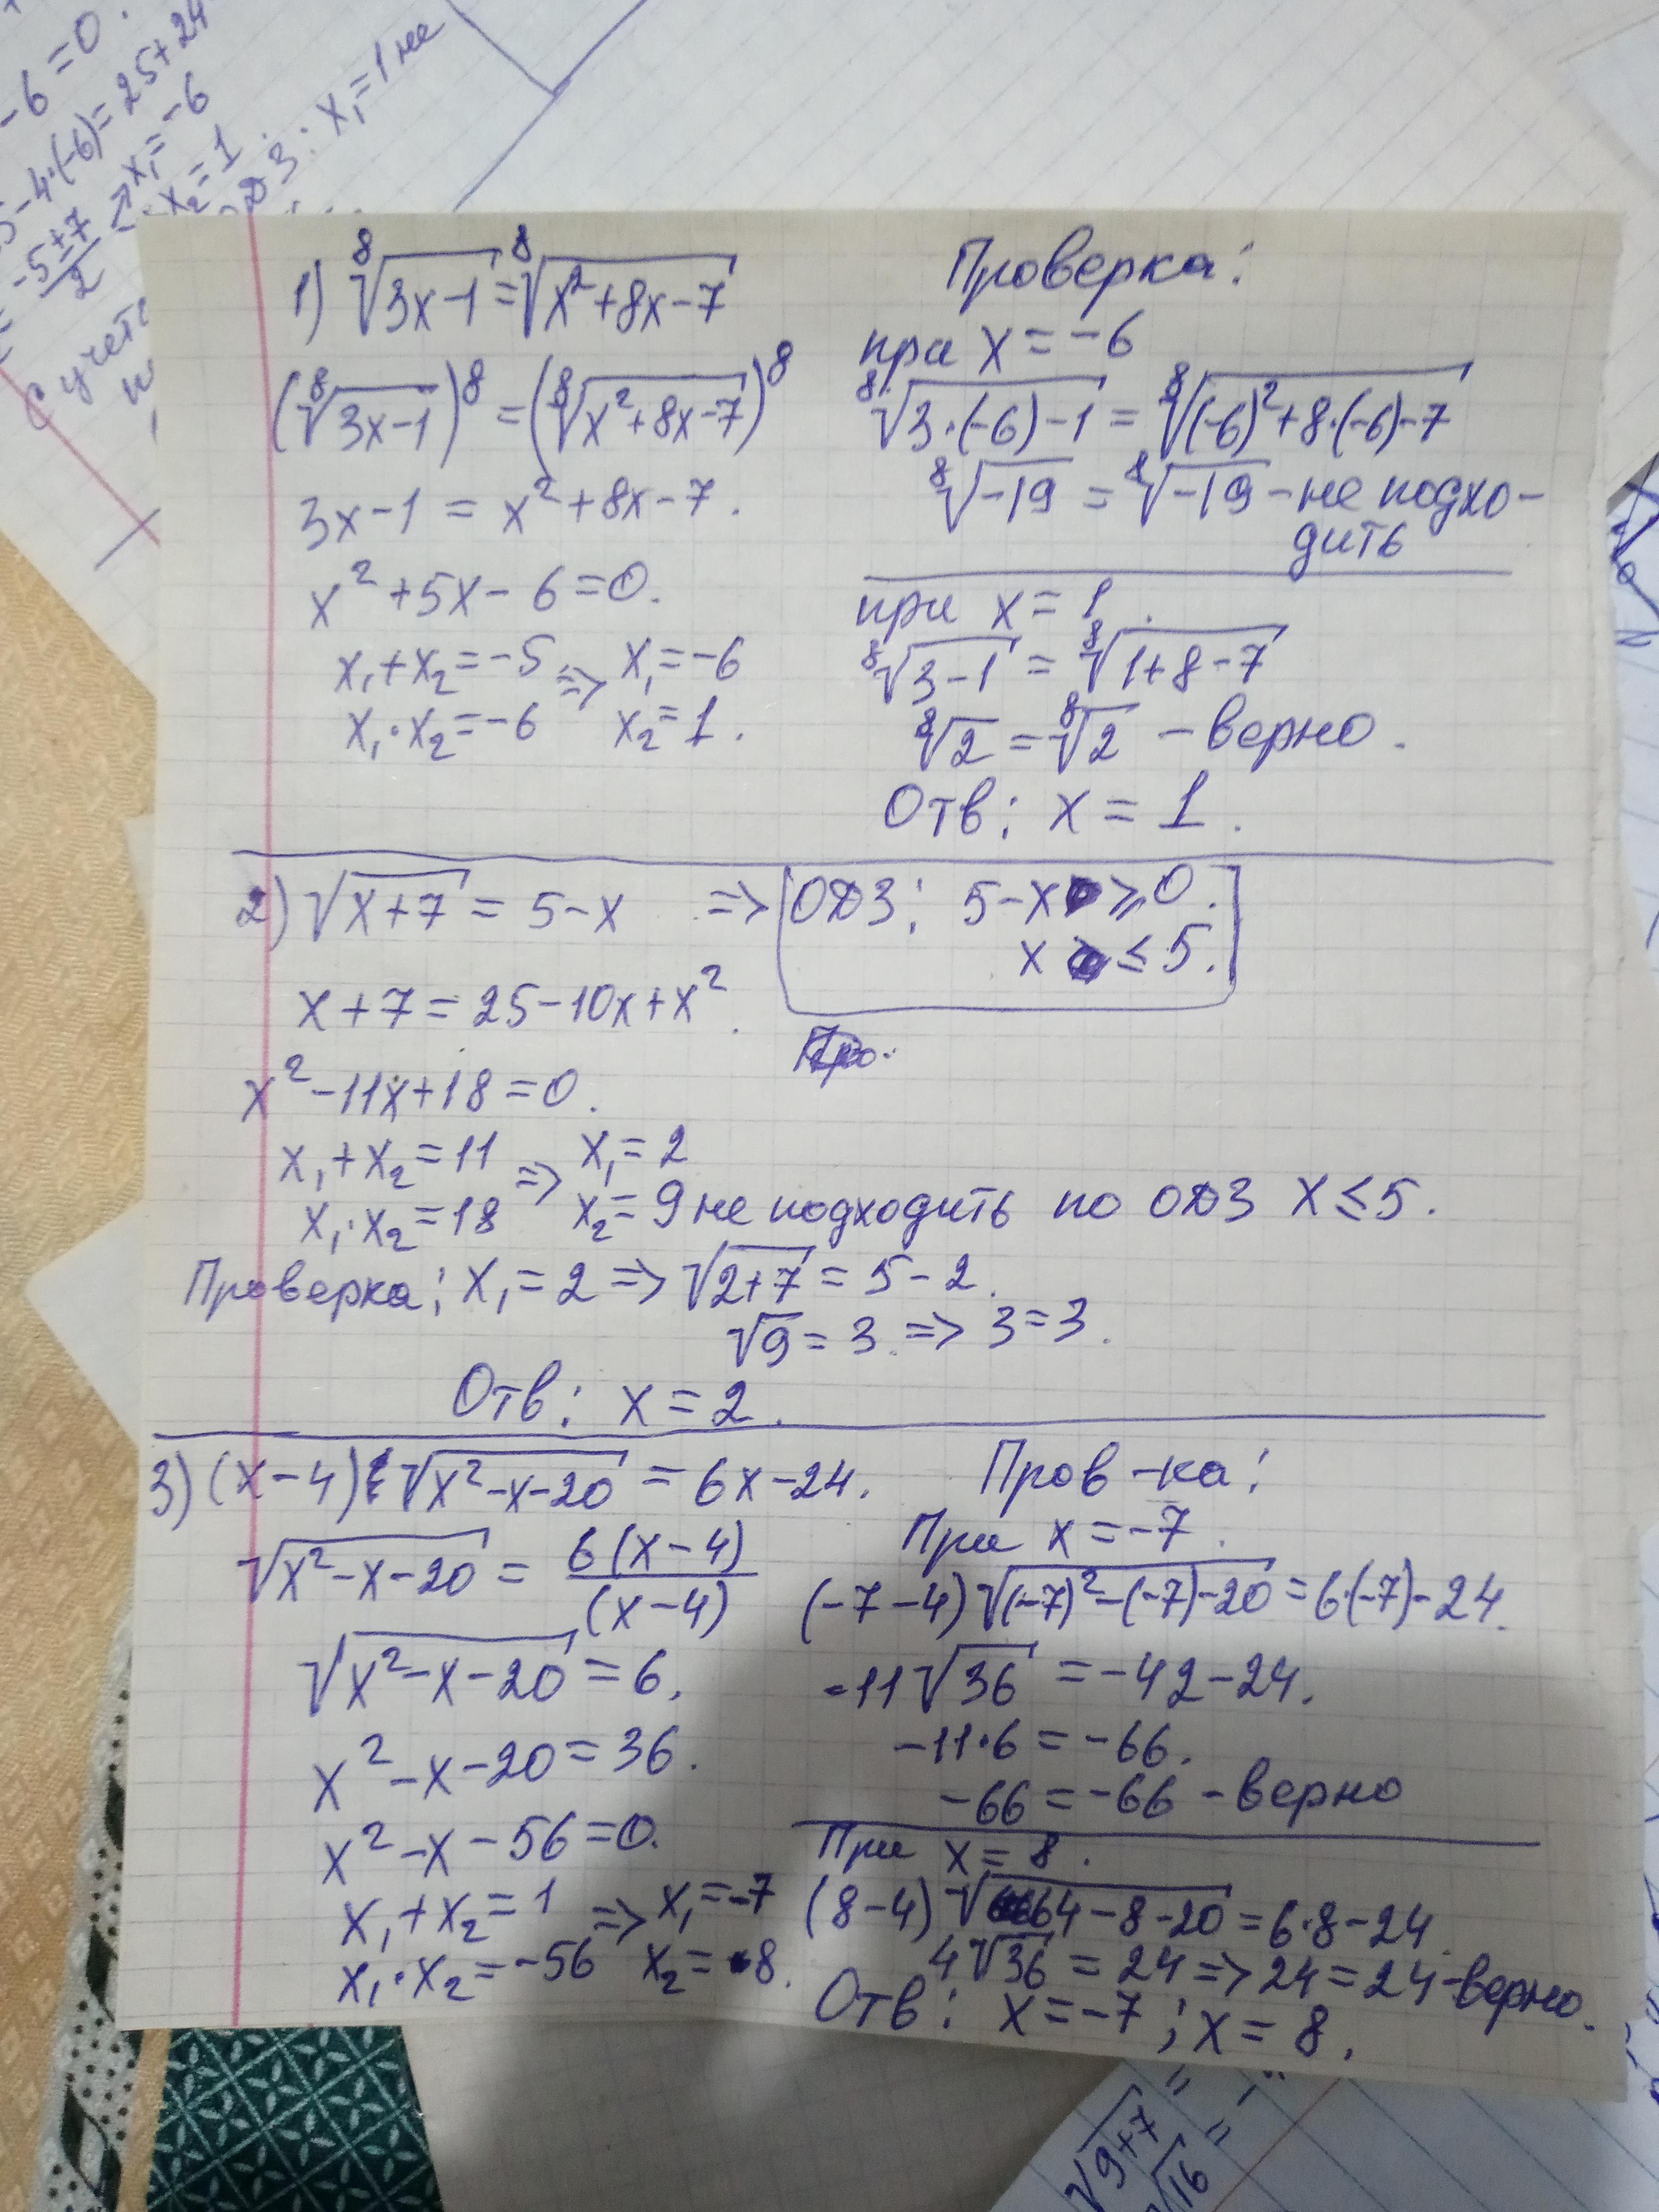 -6=0.
5-4·(-6)=25+24
-5±7
2
x₁=-6
x₂=1
ОДЗ: x₁=1 не
С учет
1) ⁸√(3x-1) = ⁸√(x²+8x-7)
(⁸√(3x-1))⁸ = (⁸√(x²+8x-7))⁸
3x-1 = x²+8x-7.
x²+5x-6=0.
x₁+x₂=-5 => x₁=-6
x₁·x₂=-6 x₂=1.
Проверка:
при x=-6
⁸√(3·(-6)-1) = ⁸√((-6)²+8·(-6)-7)
⁸√(-19) = ⁸√(-19) - не подхо-
дить
при x=1.
⁸√(3-1) = ⁸√(1+8-7)
⁸√2 = ⁸√2 - верно.
Отв: x = 1.
2) √(x+7) = 5-x => ОДЗ: 5-x ≥ 0.
x ≤ 5.
x+7=25-10x+x².
x²-11x+18=0.
x₁+x₂=11 => x₁=2
x₁·x₂=18 x₂=9 не подходить по ОДЗ x≤5.
Проверка: x₁=2 => √(2+7) = 5-2.
√9=3. => 3=3.
Отв: x=2.
3) (x-4)√(x²-x-20) = 6x-24.
√(x²-x-20) = 6(x-4)/(x-4)
√(x²-x-20) = 6.
x²-x-20=36.
x²-x-56=0.
x₁+x₂=1 => x₁=-7
x₁·x₂=-56 x₂=8.
Пров-ка:
При x=-7.
(-7-4)√((-7)²-(-7)-20) = 6·(-7)-24.
-11√36 = -42-24.
-11·6=-66.
-66=-66 - верно
При x=8.
(8-4)√(64-8-20) = 6·8-24.
4√36 = 24 => 24=24 - верно.
Отв: x=-7; x=8.
√(9+7) =
√16 = -